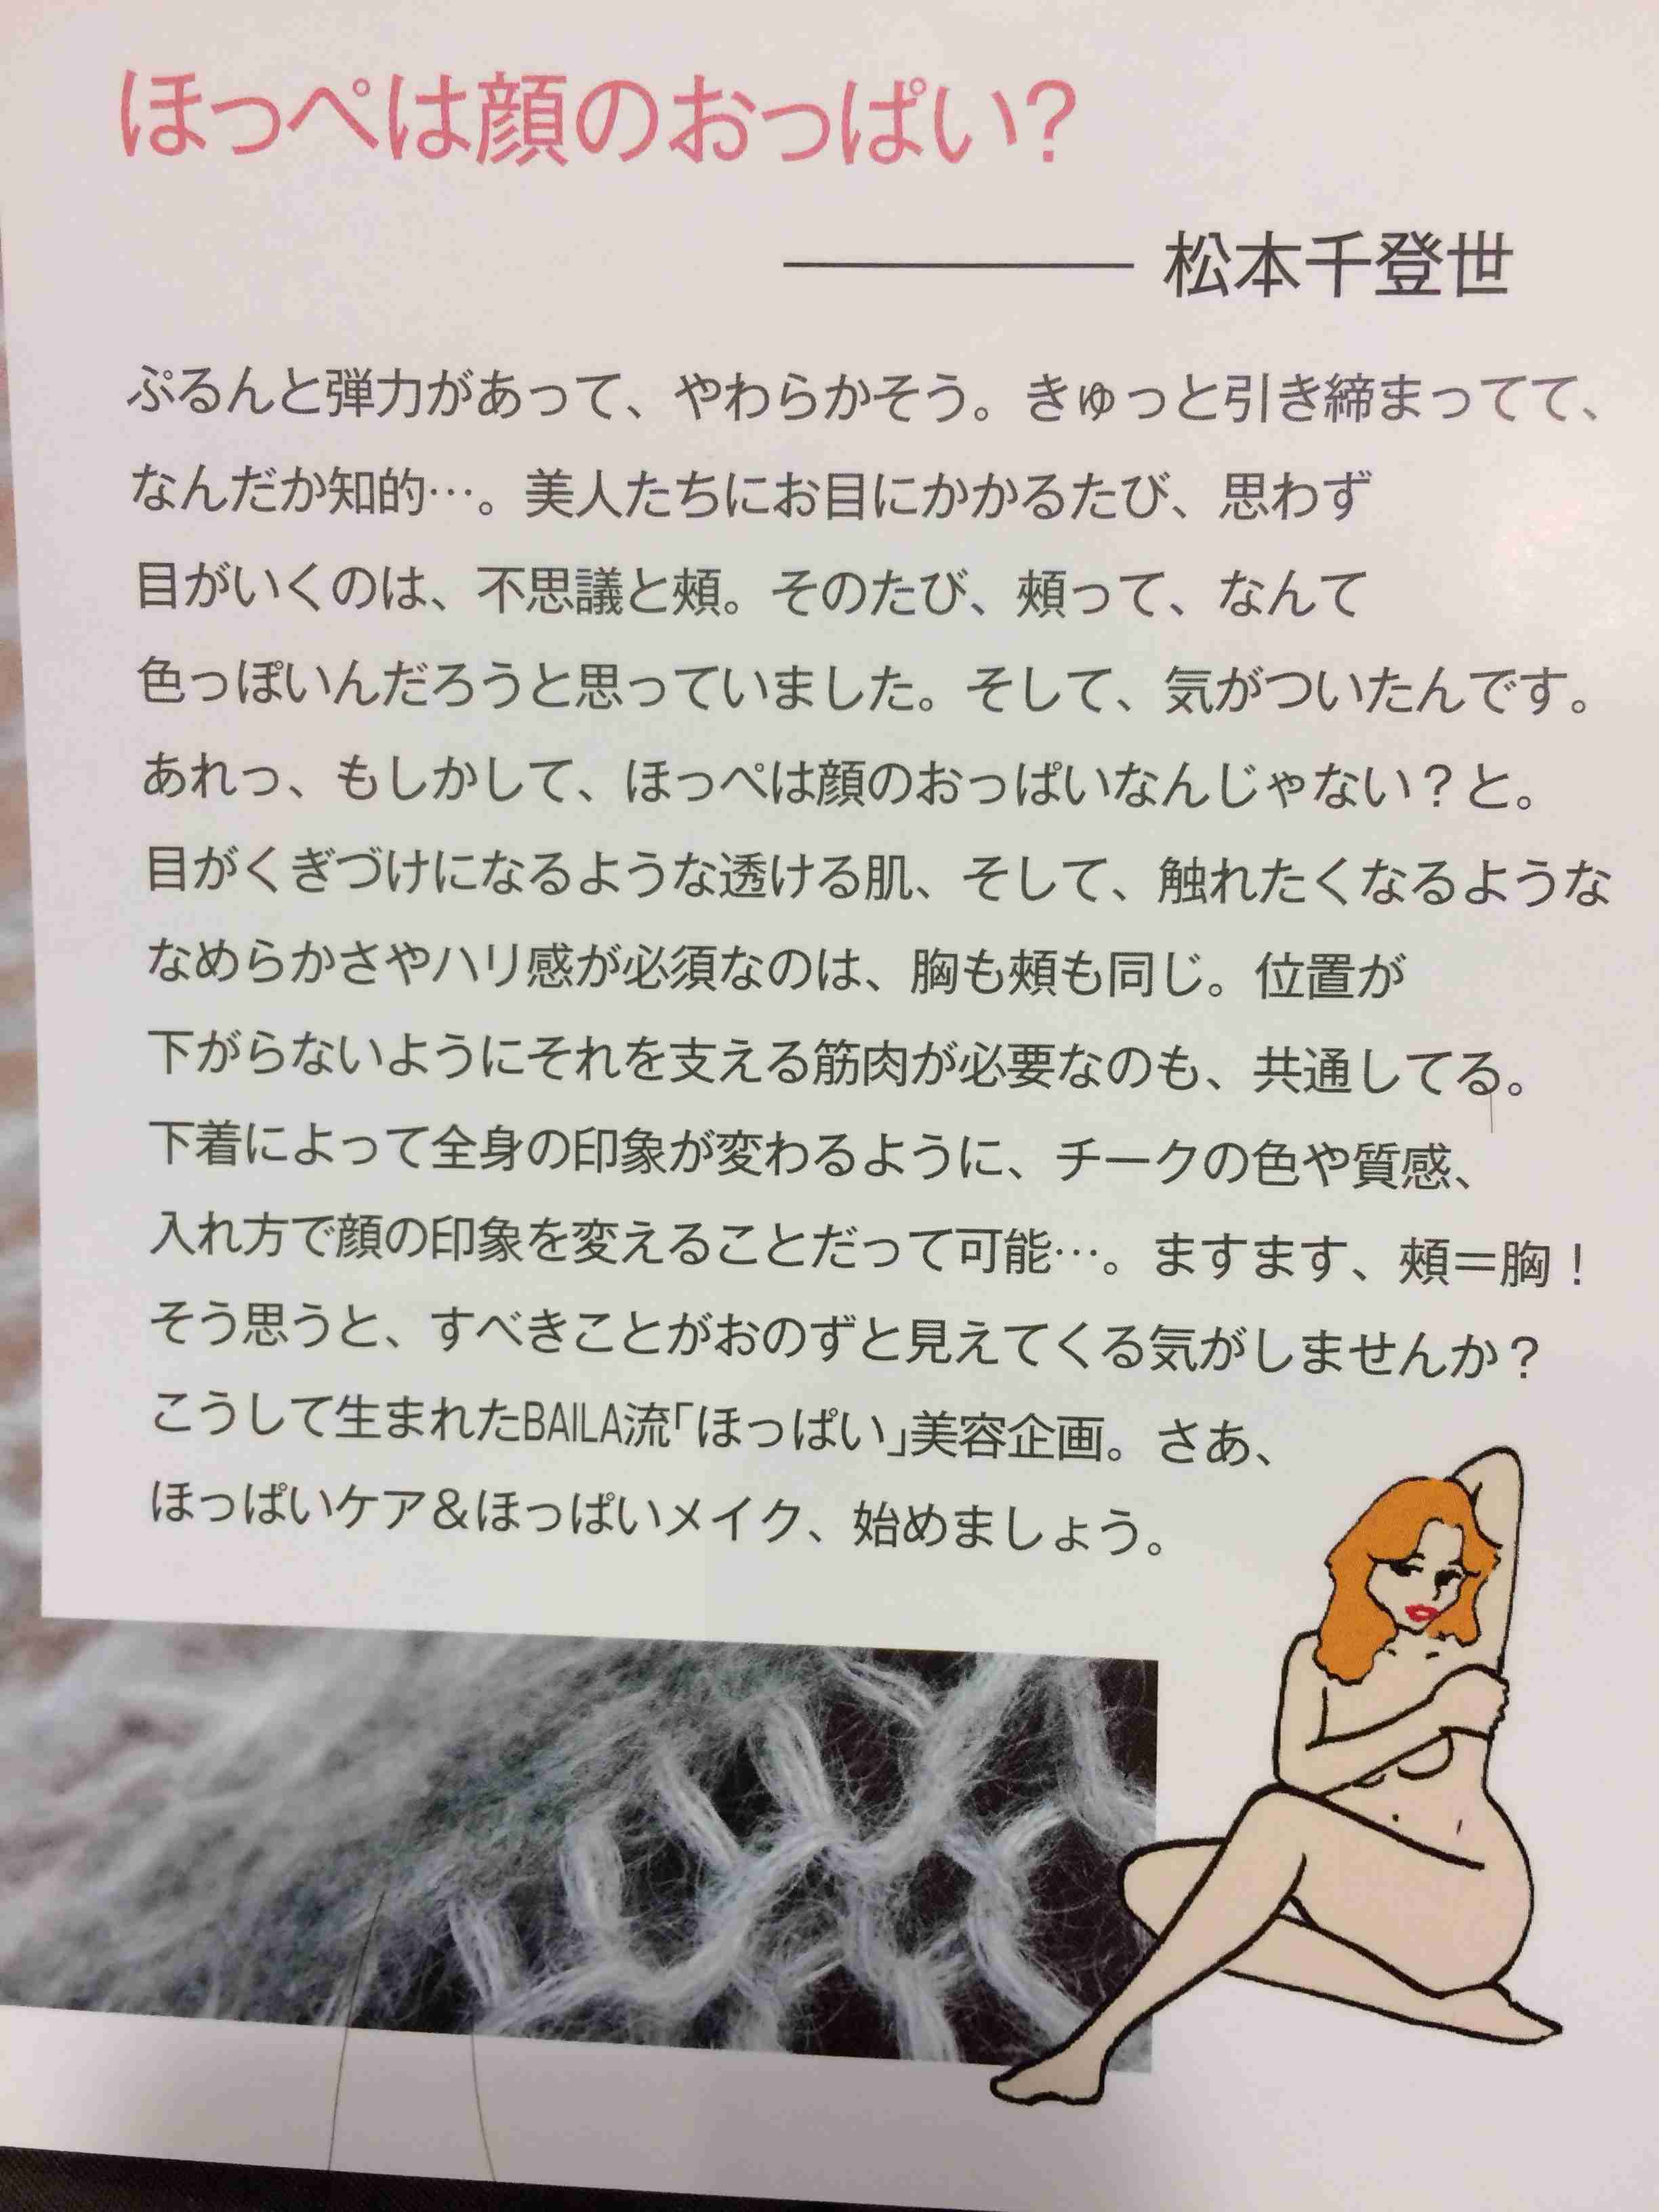 ほっぺは顔のおっぱい？
松本千登世
ぷるんと弾力があって、やわらかそう。きゅっと引き締まってて、
なんだか知的…。美人たちにお目にかかるたび、思わず
目がいくのは、不思議と頰。そのたび、頰って、なんて
色っぽいんだろうと思っていました。そして、気がついたんです。
あれっ、もしかして、ほっぺは顔のおっぱいなんじゃない？と。
目がくぎづけになるような透ける肌、そして、触れたくなるような
なめらかさやハリ感が必須なのは、胸も頰も同じ。位置が
下がらないようにそれを支える筋肉が必要なのも、共通してる。
下着によって全身の印象が変わるように、チークの色や質感、
入れ方で顔の印象を変えることだって可能…。ますます、頰＝胸！
そう思うと、すべきことがおのずと見えてくる気がしませんか？
こうして生まれたBAILA流「ほっぱい」美容企画。さあ、
ほっぱいケア＆ほっぱいメイク、始めましょう。